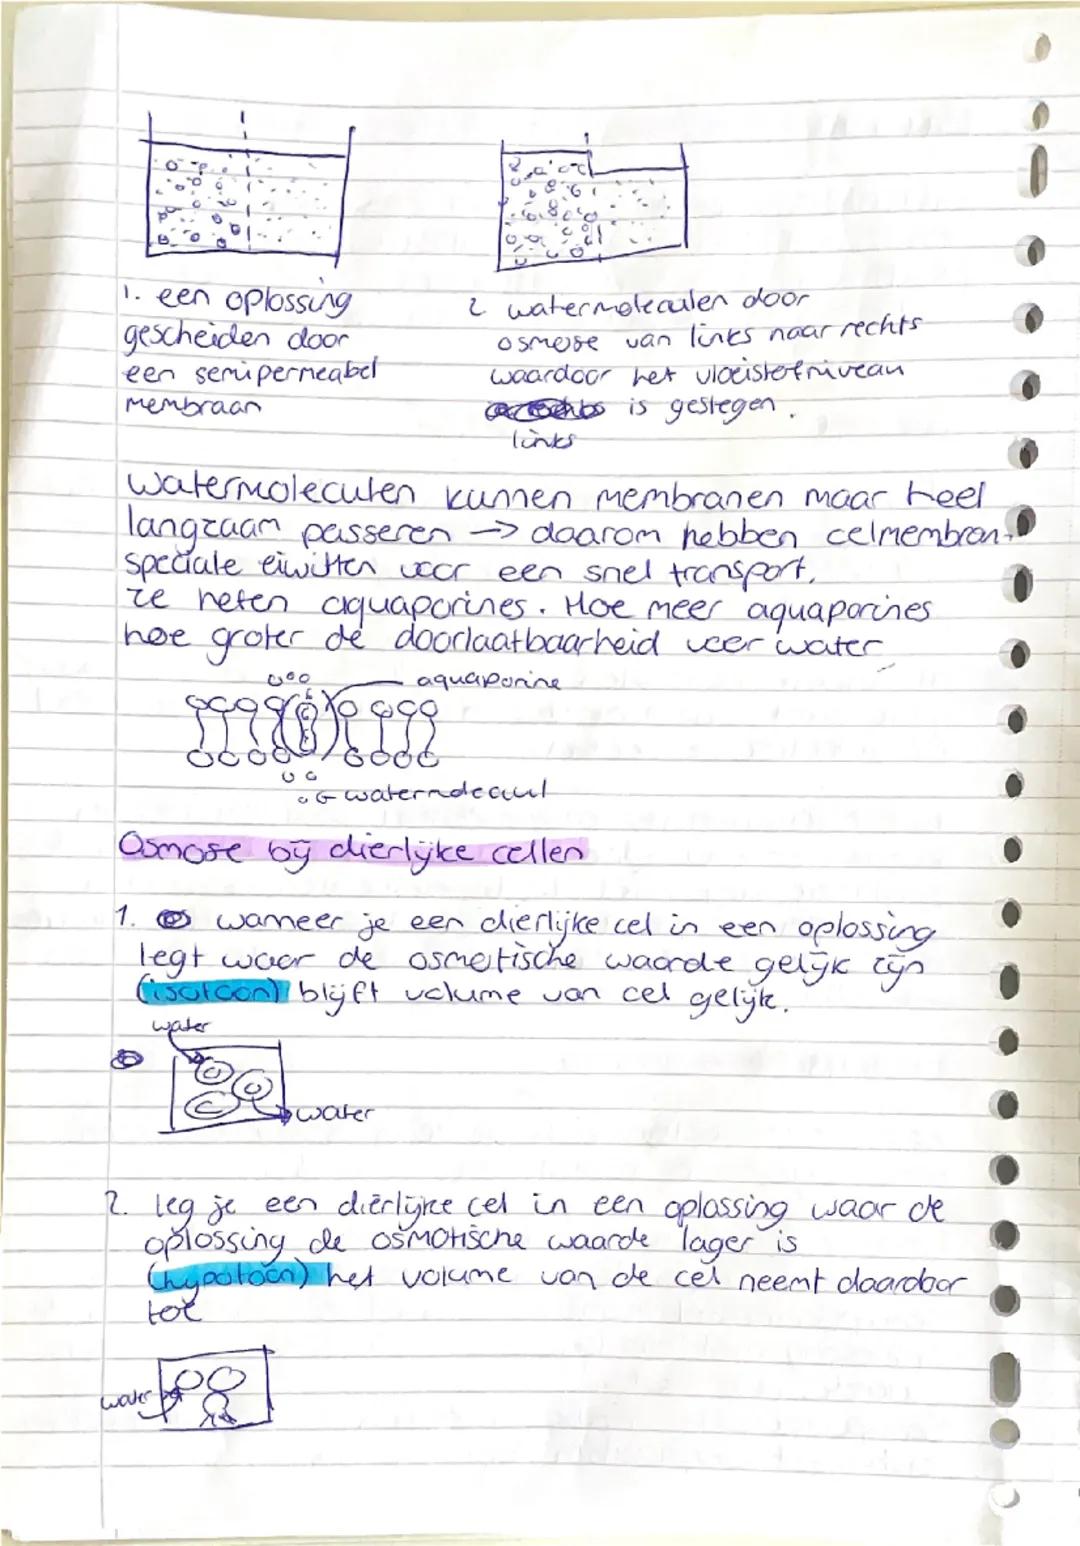 1. een oplossing
gescheiden door
een semipermeabel
membraan
2 watermoleculen door
osmose van links naar rechts
waardoor het vloeistofniveau
is gestegen.
links
Watermoleculen kunnen membranen maar heel
langzaam passeren → daarom hebben celmembran.
speciale eiwitten voor een snel transport.
ze heten aquaporines. Hoe meer aquaporines
hoe groter de doorlaatbaarheid voor water
aquaporine
watermolecuul
Osmose bij dierlijke cellen
1. wanneer je een dierlijke cel in een oplossing
legt waar de osmotische waarde gelijk zijn
(isotoon) blijft volume van cel gelijk.
water
water
2. leg je een dierlijke cel in een oplossing waar de
oplossing de osmotische waarde lager is
(hypotoon) het volume van de cel neemt daardoor
toe
water